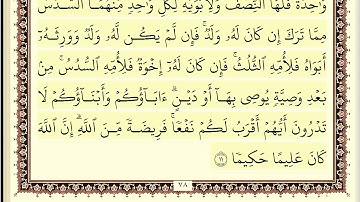 وَٰحِدَةً فَلَهَا ٱلنِّصۡفُۚ وَلِأَبَوَيۡهِ لِكُلِّ وَٰحِدٖ مِّنۡهُمَا ٱلسُّدُسُ
مِمَّا تَرَكَ إِن كَانَ لَهُۥ وَلَدٞۚ فَإِن لَّمۡ يَكُن لَّهُۥ وَلَدٞ وَوَرِثَهُۥٓ
أَبَوَاهُ فَلِأُمِّهِ ٱلثُّلُثُۚ فَإِن كَانَ لَهُۥٓ إِخۡوَةٞ فَلِأُمِّهِ ٱلسُّدُسُۚ مِنۢ
بَعۡدِ وَصِيَّةٖ يُوصِي بِهَآ أَوۡ دَيۡنٍۗ ءَابَآؤُكُمۡ وَأَبۡنَآؤُكُمۡ لَا
تَدۡرُونَ أَيُّهُمۡ أَقۡرَبُ لَكُمۡ نَفۡعٗاۚ فَرِيضَةٗ مِّنَ ٱللَّهِۗ إِنَّ ٱللَّهَ
كَانَ عَلِيمًا حَكِيمٗا ١١
٧٨